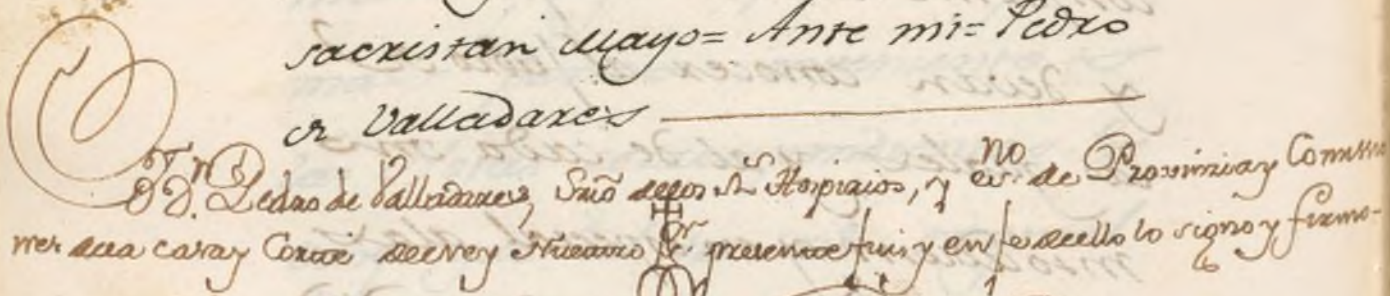 sacristan Mayo= Ante mi= Pedro
de Valladares
Dn. Pedro de Valladares, Srio de los Rs. Hospicios, y esno. de Provinzia y Comissio
nes de la casa y Corte del rey Nuestro Sor. presente fui y en fe de ello lo signo y firmo-